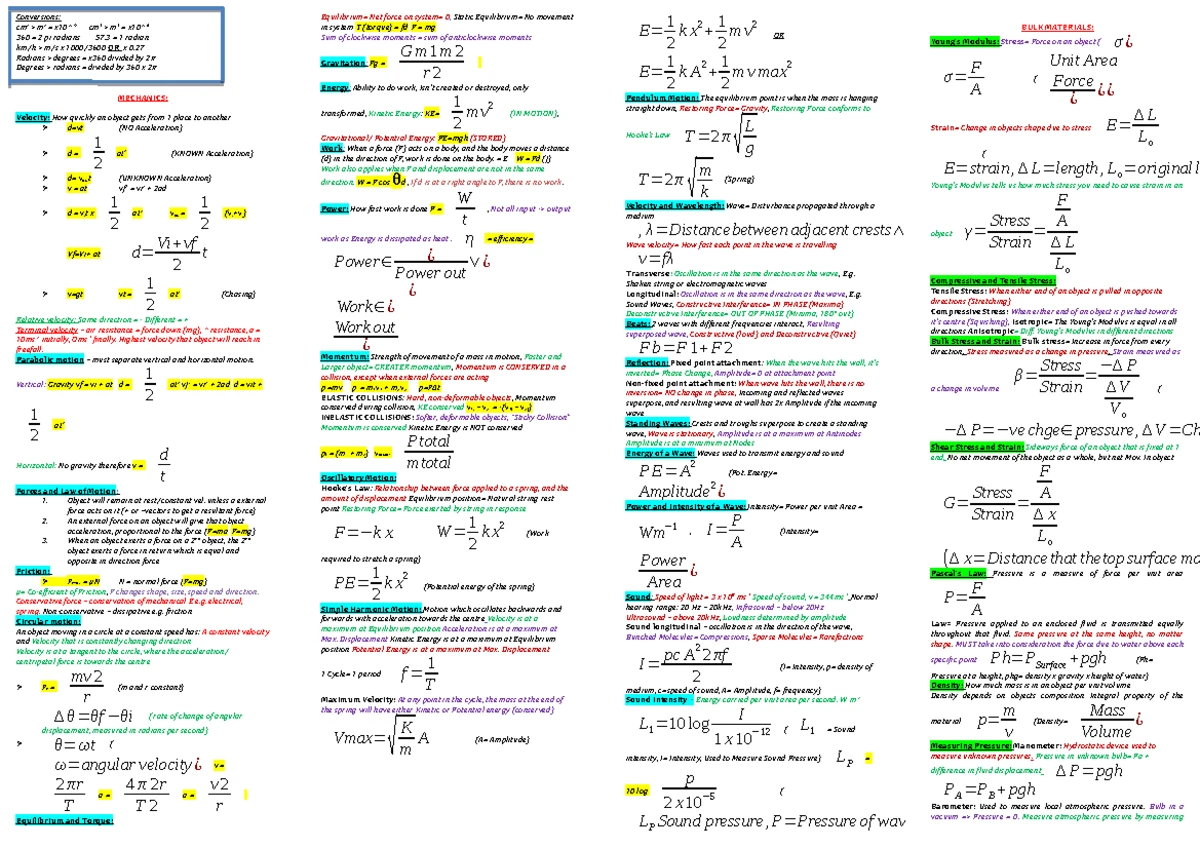 Conversions:
cm² > m² = x10^-4 cm³ > m³ = x10^-6
360 = 2 pi radians 57.3 = 1 radian
km/h > m/s x1000/3600 OR x 0.27
Radians > degrees = x360 divided by 2π
Degrees > radians = divided by 360 x 2π
MECHANICS:
Velocity: How quickly an object gets from 1 place to another
d=vt (NO Acceleration)
d = 1/2 at² (KNOWN Acceleration)
(UNKNOWN Acceleration)
v = at
d = Vi + vf / 2 t
v=gt (Chasing)
Relative velocity: Same direction = - Different = +
Terminal velocity – air resistance = force down (mg), ^ resistance, a =
freefall.
Parabolic motion – must separate vertical and horizontal motion.
Vertical: Gravity
1/2 at²
Horizontal: No gravity therefore v = d/t
Forces and Law of Motion:
1. Object will remain at rest/constant vel. unless a external
force acts on it (+ or –vectors to get a resultant force)
2. An external force on an object will give that object
acceleration, proportional to the force (F=ma
3. When an object exerts a force on a 2nd object, the 2nd
object exerts a force in return which is equal and
opposite in direction force
Friction:
N = normal force (F=mg)
µ= Co-efficient of Friction, F changes shape, size, speed and direction.
Conservative force – conservation of mechanical E e.g. electrical,
spring. Non conservative – dissipative e.g. friction
Circular motion:
An object moving in a circle at a constant speed has: A constant velocity
and Velocity that is constantly changing direction
Velocity is at a tangent to the circle, where the acceleration/
centripetal force is towards the centre
mv2/r (m and r constant)
Δθ=θf−θi (rate of change of angular
displacement, measured in radians per second)
θ=ωt (
ω=angular velocity¿ v=
2πr/T a = 4π2r/T2 a = v2/r
Equilibrium and Torque:
Equilibrium= Net force on system= 0, Static Equilibrium= No movement
in system T (torque) = fd F = mg
Sum of clockwise moments = sum of anticlockwise moments
Gravitation: Fg = Gm1m2/r2
Energy: Ability to do work, isn't created or destroyed, only
transformed, Kinetic Energy: KE= 1/2 mv² (IN MOTION),
Gravitational/ Potential Energy: PE=mgh (STORED)
Work: When a force (F) acts on a body, and the body moves a distance
(d) in the direction of F, work is done on the body. = E W = Fd (J)
Work also applies when F and displacement are not in the same
direction. W = F cos θ d, If d is at a right angle to F, there is no work.
Power: How fast work is done P = W/t . Not all input -> output
work as Energy is dissipated as heat . η =efficiency=
Power∈ ¿/Power out ∨¿
¿
Work∈¿
Work out/¿
Momentum: Strength of movement of a mass in motion, Faster and
Larger object= GREATER momentum, Momentum is CONSERVED in a
collision, except when external forces are acting
ELASTIC COLLISIONS: Hard, non-deformable objects, Momentum
conserved during collision, KE conserved
INELASTIC COLLISIONS: Softer, deformable objects, "Sticky Collision"
Momentum is conserved Kinetic Energy is NOT conserved
P total/m total
Oscillatory Motion:
Hooke's Law: Relationship between force applied to a spring, and the
amount of displacement Equilibrium position= Natural string rest
point Restoring Force= Force exerted by string in response
F=−kx W=1/2 kx² (Work
required to stretch a spring)
PE=1/2 kx² (Potential energy of the spring)
Simple Harmonic Motion: Motion which oscillates backwards and
forwards with acceleration towards the centre Velocity is at a
maximum at Equilibrium position Acceleration is at a maximum at
Max. Displacement Kinetic Energy is at a maximum at Equilibrium
position Potential Energy is at a maximum at Max. Displacement
1 Cycle= 1 period f=1/T
Maximum Velocity: At any point in the cycle, the mass at the end of
the spring will have either Kinetic or Potential energy (conserved)
Vmax=√(K/m) A (A= Amplitude)
E=1/2 kx²+1/2 mv² OR
E=1/2 kA²+1/2 mvmax²
Pendulum Motion: The equilibrium point is when the mass is hanging
straight down, Restoring Force= Gravity, Restoring Force conforms to
Hooke's Law T=2π√(L/g)
T=2π√(m/k) (Spring)
Velocity and Wavelength: Wave= Disturbance propagated through a
medium
, λ=Distance between adjacent crests∧
Wave velocity= How fast each point in the wave is travelling
v=fλ
Transverse: Oscillation is in the same direction as the wave, E.g.
Shaken string or electromagnetic waves
Longitudinal: Oscillation is in the same direction as the wave, E.g.
Sound Waves, Constructive Interference= IN PHASE (Maxima)
Deconstructive Interference= OUT OF PHASE (Minima, 180° out)
Beats: 2 waves with different frequencies interact, Resulting
superposed wave, Constructive (loud) and Deconstructive (Quiet)
Fb=F1+F2
Reflection: Fixed point attachment: When the wave hits the wall, it's
inverted= Phase Change, Amplitude= 0 at attachment point
Non-fixed point attachment: When wave hits the wall, there is no
inversion= NO change in phase, Incoming and reflected waves
superpose, and resulting wave at wall has 2x Amplitude if the incoming
wave
Standing Waves: Crests and troughs superpose to create a standing
wave, Wave is stationary, Amplitude is at a maximum at Antinodes
Amplitude is at a minimum at Nodes
Energy of a Wave: Waves used to transmit energy and sound
PE=A² (Pot. Energy=
Amplitude²¿
Power and Intensity of a Wave: Intensity= Power per unit Area =
Wm⁻¹ . I=P/A (Intensity=
Power/Area ¿
Sound: Speed of light = 3 x 10⁸ ms⁻¹ Speed of sound, v = 344 ms⁻¹, Normal
hearing range: 20 Hz – 20kHz, Infrasound – below 20Hz
Ultrasound – above 20kHz, Loudness determined by amplitude
Sound longitudinal – oscillation is in the direction of the wave,
Bunched Molecules= Compressions, Sparse Molecules= Rarefactions
I=pcA²2πf/2 (I= Intensity, p= density of
medium, c=speed of sound, A= Amplitude, f= frequency)
Sound Intensity Energy carried per unit area per second. W m⁻²
L₁=10log I/1x10⁻¹² ( L₁ = Sound
Intensity, I= Intensity, Used to Measure Sound Pressure) Lₚ =
10 log p/2x10⁻⁵ (
Lₚ Sound pressure, P=Pressure of wav
BULK MATERIALS:
Young's Modulus: Stress= Force on an object ( σ¿
σ=F/A ( Unit Area
Force/¿ ¿¿
Strain= Change in objects shape due to stress E=ΔL/L₀
(
E=strain, ΔL=length, L₀=original l
Young's Modulus tells us how much stress you need to cause strain in an
object γ=Stress/Strain=(F/A)/(ΔL/L₀)
Compressive and Tensile Stress:
Tensile Stress: When either end of an object is pulled in opposite
directions (Stretching)
Compressive Stress: When either end of an object is pushed towards
it's centre (Squashing), Isotropic= The Young's Modulus is equal in all
directions Anisotropic= Diff Young's Modulus in different directions
Bulk Stress and Strain: Bulk stress= Increase in force from every
direction, Stress measured as a change in pressure, Strain measured as
a change in volume β=Stress/Strain=−ΔP/(ΔV/V₀) (
−ΔP=−ve chge∈pressure, ΔV=Ch
Shear Stress and Strain: Sideways force of an object that is fixed at 1
end, No net movement of the object as a whole, but net Mov. in object
G=Stress/Strain=(F/A)/(Δx/L₀)
(Δx=Distance that the top surface mo
Pascal's Law: Pressure is a measure of force per unit area
P=F/A
Law= Pressure applied to an enclosed fluid is transmitted equally
throughout that fluid. Same pressure at the same height, no matter
shape. MUST take into consideration the force due to water above each
specific point Ph=P Surface+pgh (Ph=
Pressure at a height, phg= density x gravity x height of water)
Density: How much mass is in an object per unit volume
Density depends on objects composition Integral property of the
material p=m/v (Density= Mass/Volume ¿
Measuring Pressure: Manometer: Hydrostatic device used to
measure unknown pressures, Pressure in unknown bulb= Pa +
difference in fluid displacement, ΔP=pgh
P_A=P_B+pgh
Barometer: Used to measure local atmospheric pressure. Bulb in a
vacuum => Pressure = 0. Measure atmospheric pressure by measuring